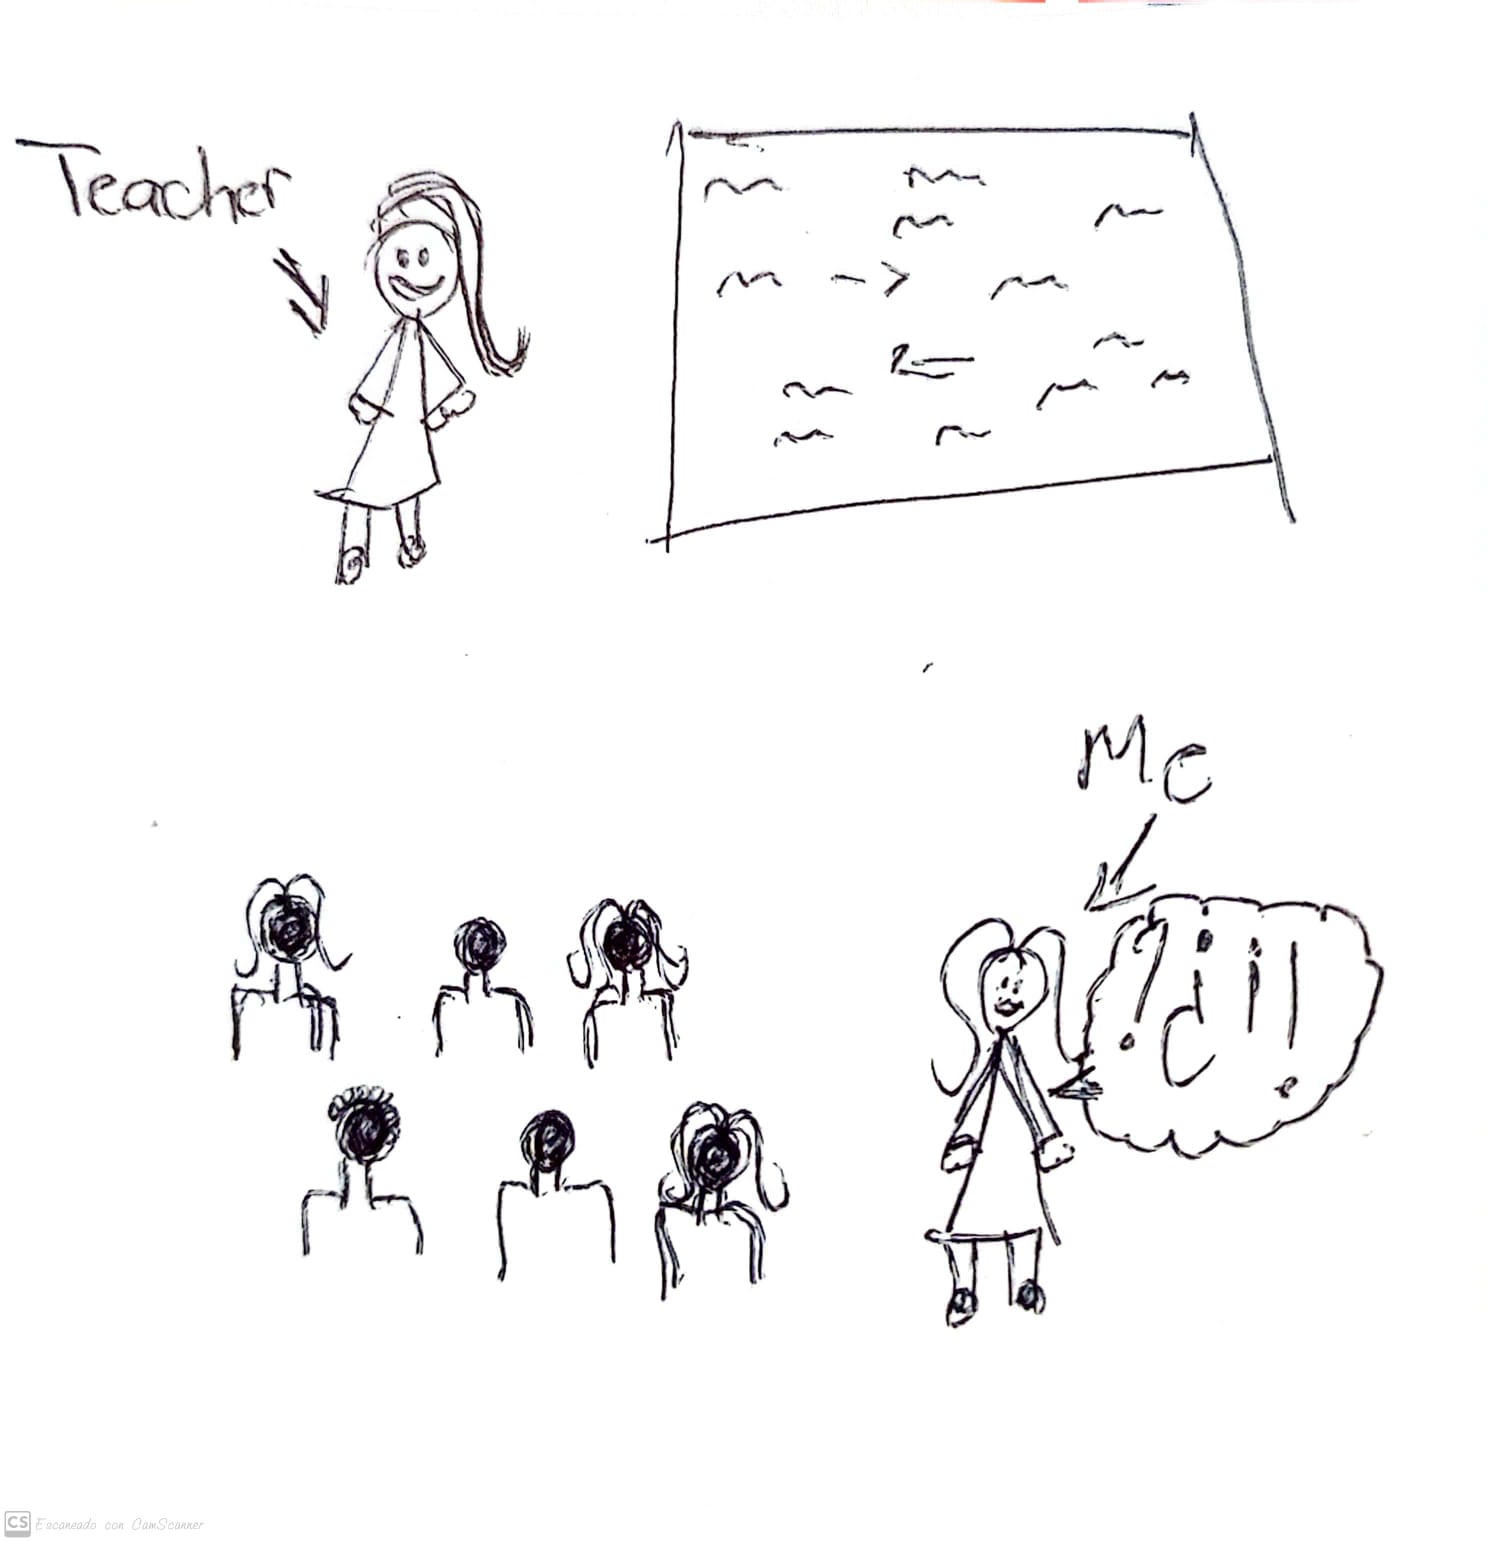 Teacher
Me
! ¿ ¡ !
CS Escaneado con CamScanner